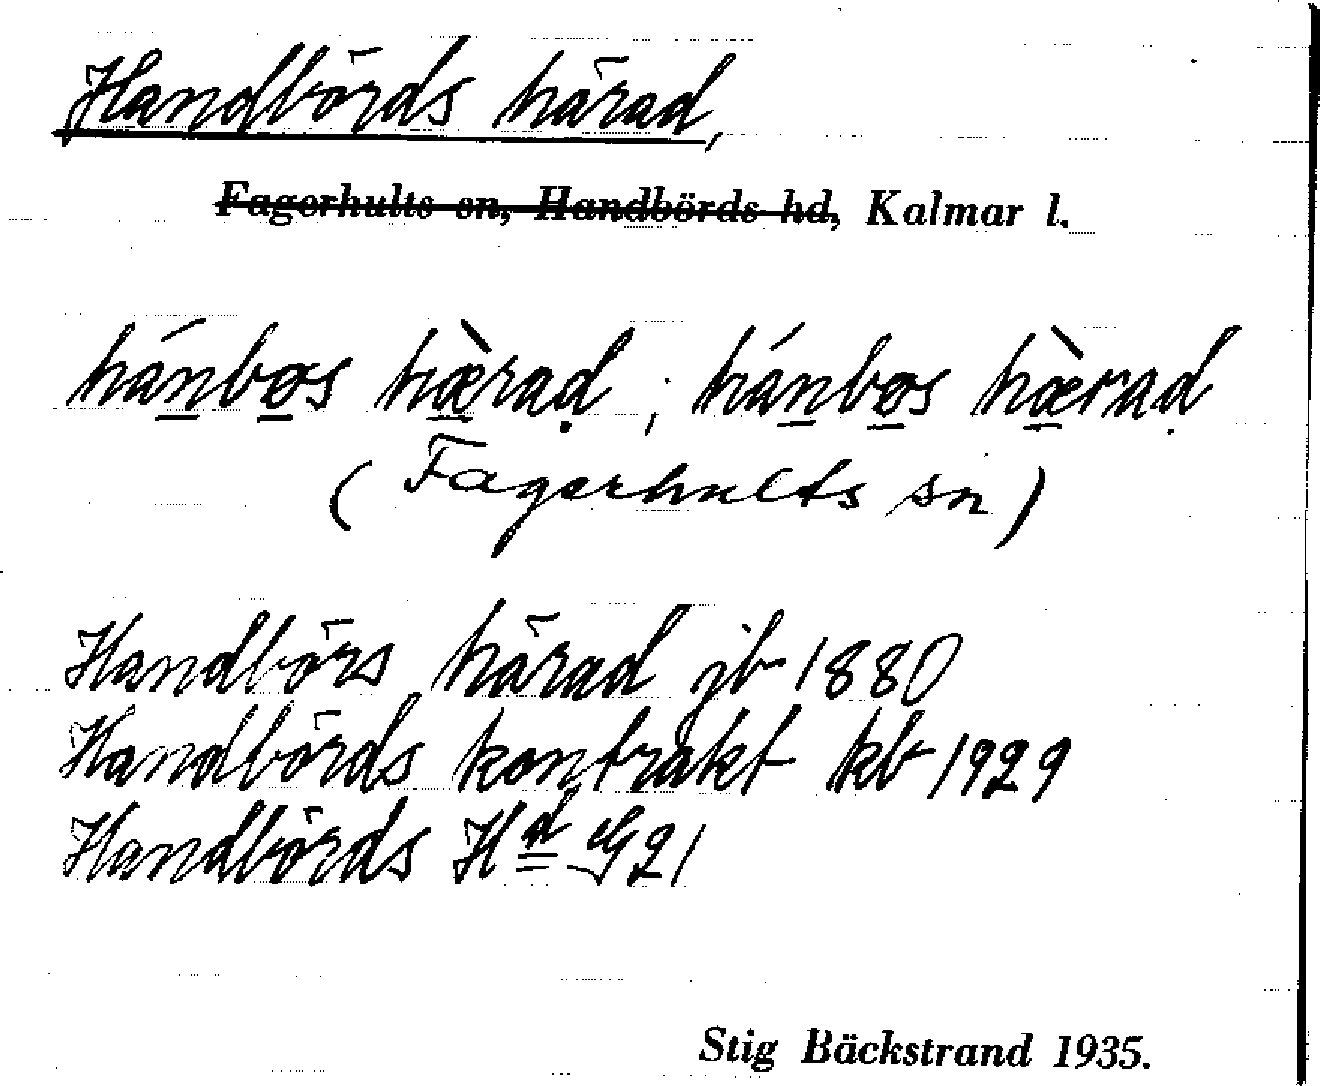 Handbörds härad,
Fagerhults sn, Handbörds hd, Kalmar l.
hánbos hæ̀rad, hánbos hæ̀rad
(Fagerhults sn)
Handbörs härad jb 1880
Handbörds kontrakt kb 1929
Handbörds Hd G21
Stig Bäckstrand 1935.